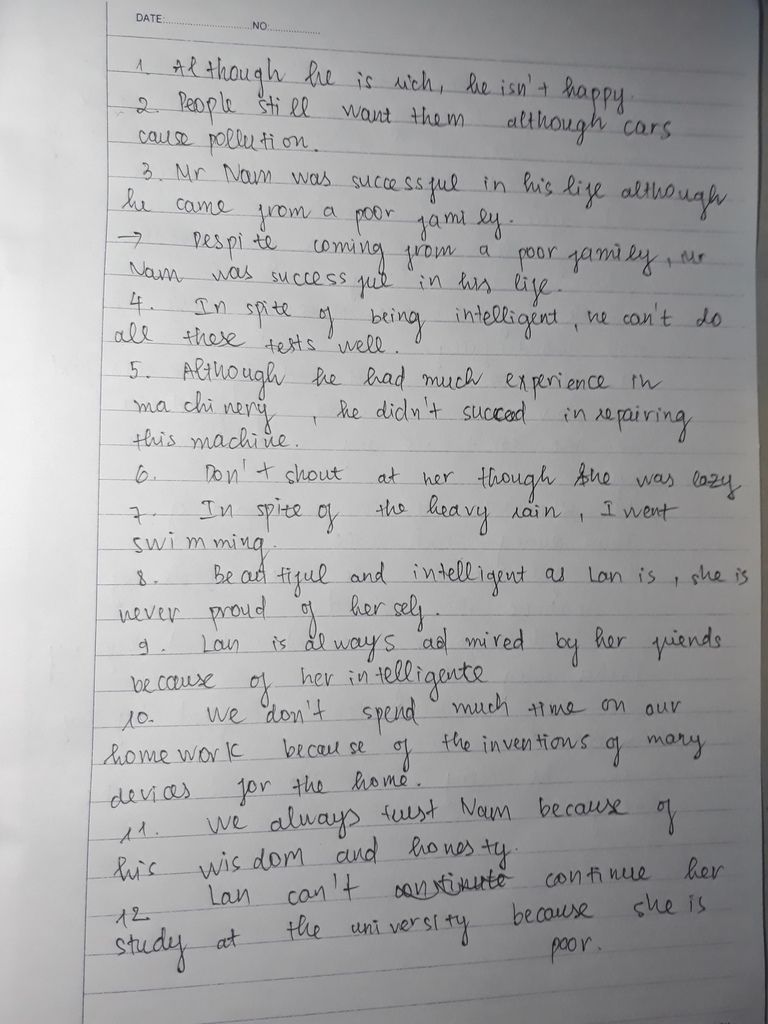 DATE:..............................NO:..................
1. Although he is rich, he isn't happy.
2. People still want them although cars
cause pollution.
3. Mr Nam was successful in his life although
he came from a poor family.
→ Despite coming from a poor family, Mr
Nam was successful in his life.
4. In spite of being intelligent, he can't do
all these tests well.
5. Although he had much experience in
machinery, he didn't succeed in repairing
this machine.
6. Don't shout at her though she was lazy
7. In spite of the heavy rain, I went
swimming.
8. Beautiful and intelligent as Lan is, she is
never proud of herself.
9. Lan is always admired by her friends
because of her intelligente
10. We don't spend much time on our
homework because of the inventions of many
devices for the home.
11. We always trust Nam because of
his wisdom and honesty.
12 Lan can't continue her
study at the university because she is
poor.